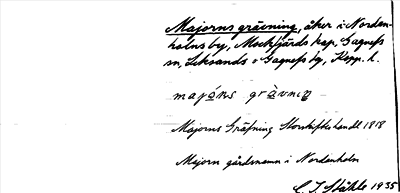 Majorns grävning, åker i Norden-
holns by, Mockfjärds kap., Gagnefs
sn, Leksands o Gagnefs tg, Kopp. l.
majǫ́ns grǟvniŋ
Majorns Gräfning Storskifteshandl 1818
Majorn gårdsnamn i Nordenholn
C. I. Ståhle 1935